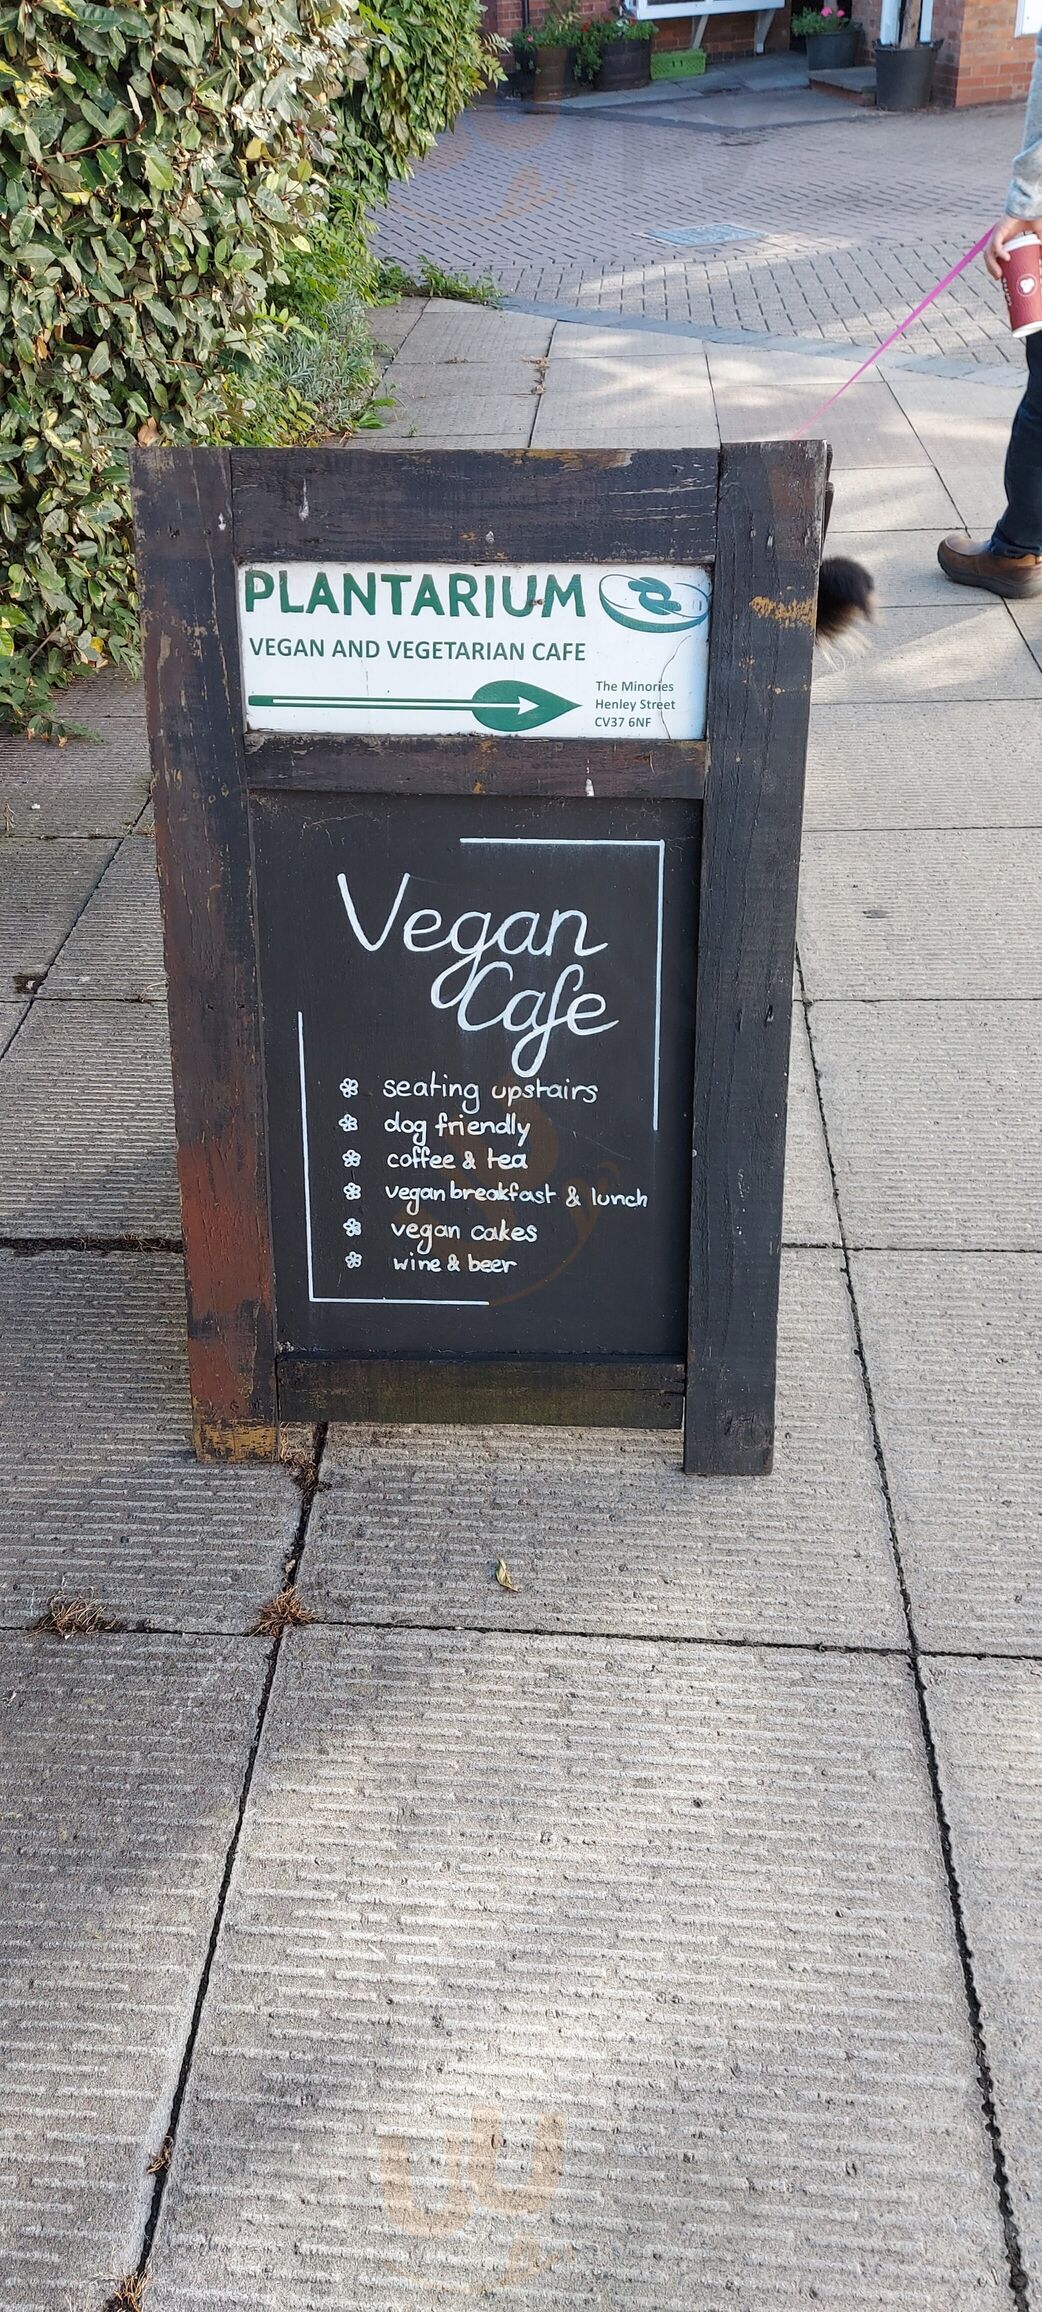 PLANTARIUM
VEGAN AND VEGETARIAN CAFE
The Minories
Henley Street
CV37 6NF
Vegan
Cafe
seating upstairs
dog friendly
coffee & tea
vegan breakfast & lunch
vegan cakes
wine & beer